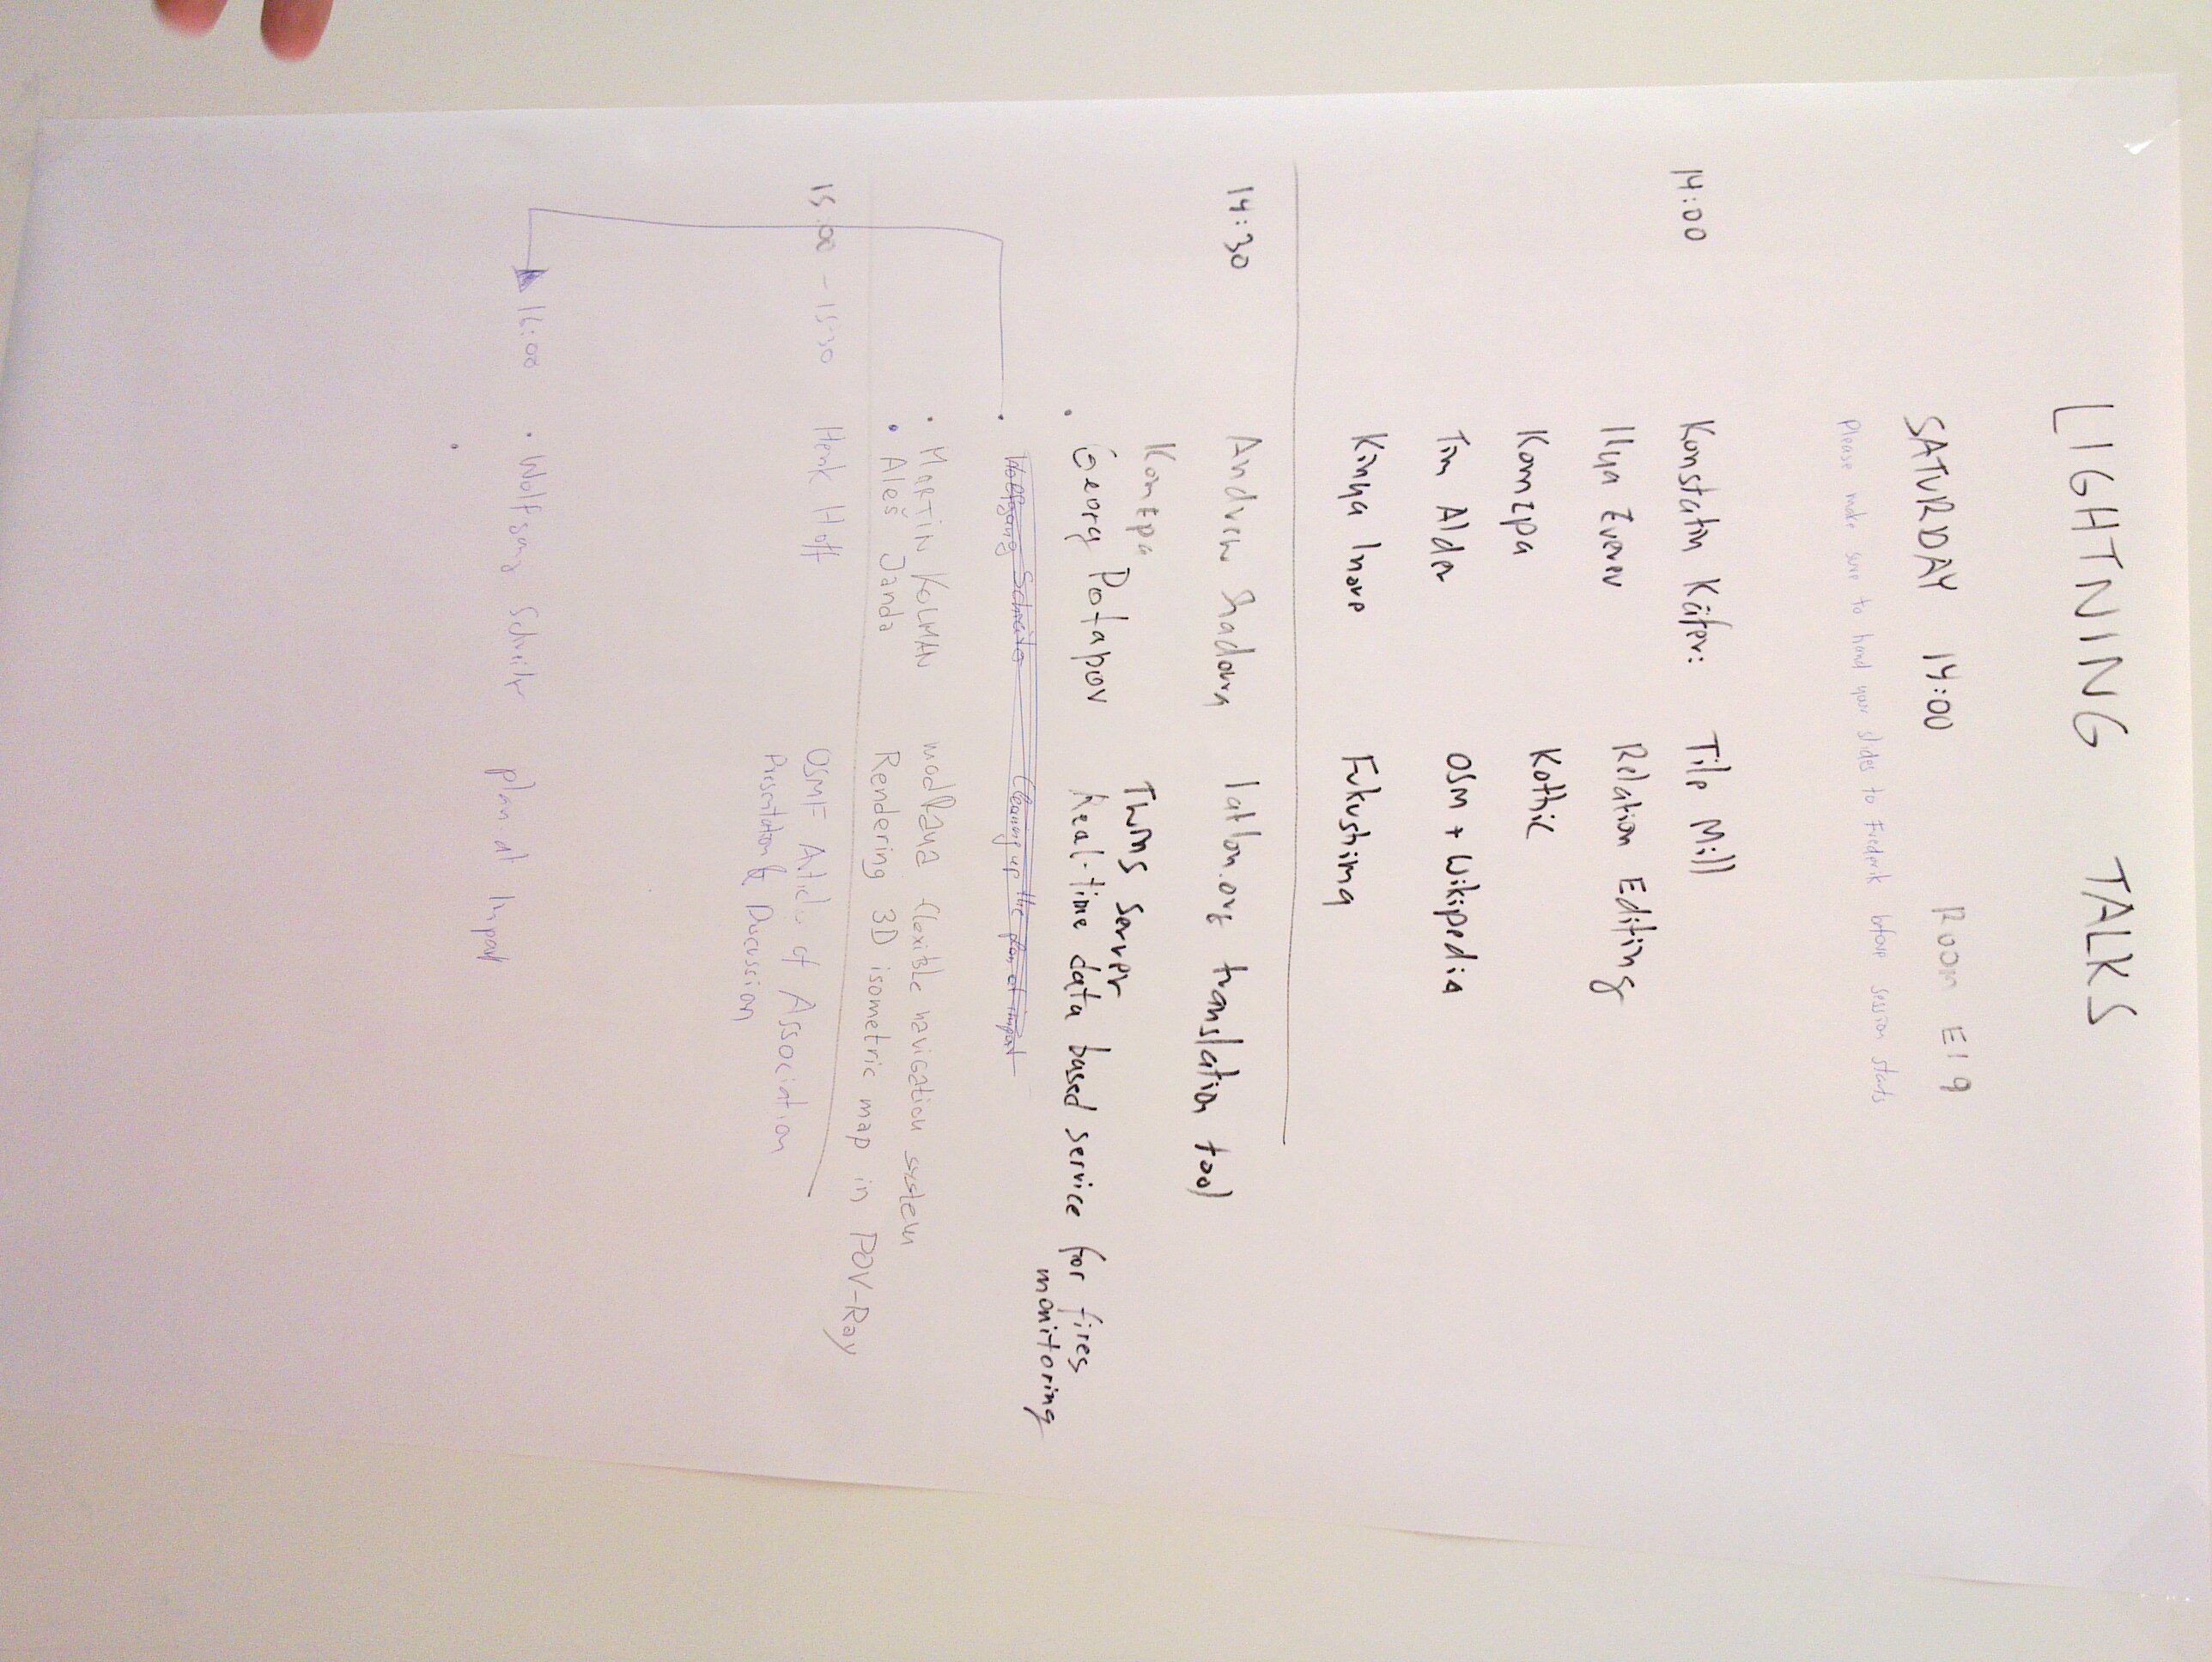 LIGHTNING TALKS
SATURDAY 14:00 ROOM E119
Please make sure to hand your slides to Frederik before session starts
14:00 Konstatin Käfer: Tile Mill
Ilya Zverev Relation Editing
Komzpa Kothic
Tim Alder OSM + Wikipedia
Kinya Inoue Fukushima
14:30 Andrew Shadoura latlon.org translation tool
Komzpa TWMS server
• Georg Potapov Real-time data based service for fires
monitoring
• Wolfgang Cleaning up the plan.at import
• MARTIN KOLMAN modRana flexible navigation system
• Aleš Janda Rendering 3D isometric map in POV-Ray
15:00 - 15:30 Henk Hoff OSMF Articles of Association
Presentation & Discussion
16:00 • Wolfgang plan.at Import
•